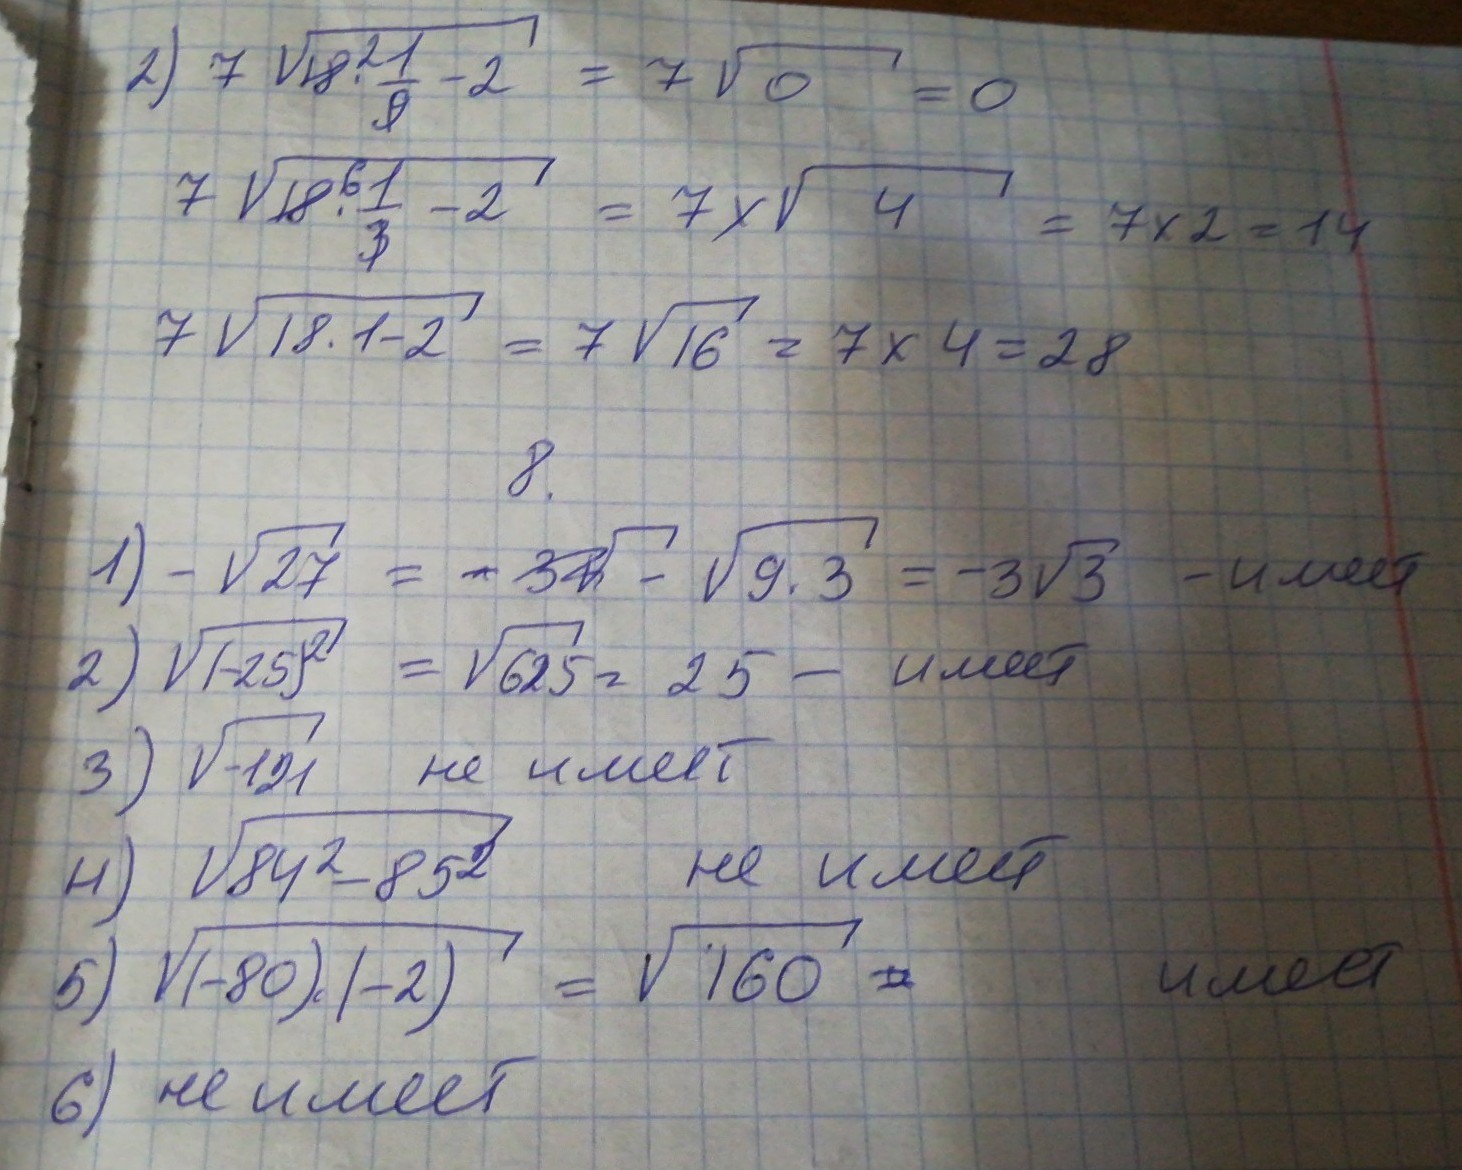 2) 7 √(18·²1/9 - 2) = 7 √0 = 0
7 √(18·⁶1/3 - 2) = 7 × √4 = 7 × 2 = 14
7 √(18·1-2) = 7 √16 = 7 × 4 = 28
8.
1) - √27 = - √(9·3) = -3√3 - имеет
2) √((-25)²) = √625 = 25 - имеет
3) √(-121) не имеет
4) √(84² - 85²) не имеет
5) √((-80)·(-2)) = √160 имеет
6) не имеет